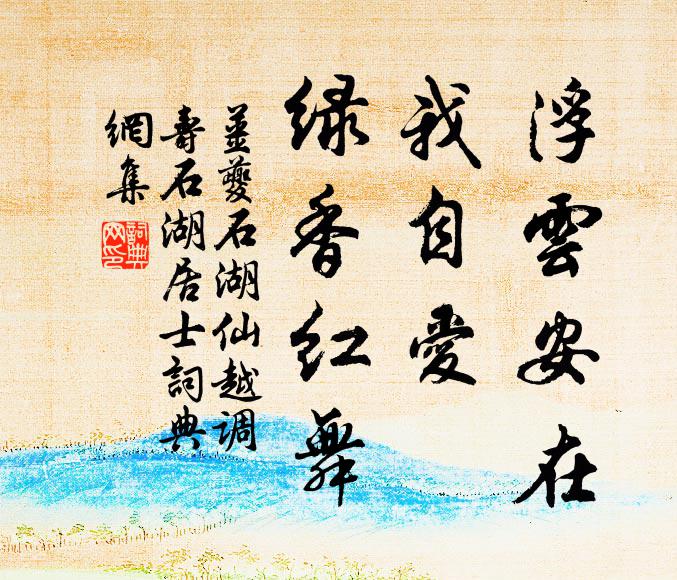 浮雲安在
我自愛
綠香紅舞
姜夔石湖仙越調
壽石湖居士詞典
網集
詞典
网印